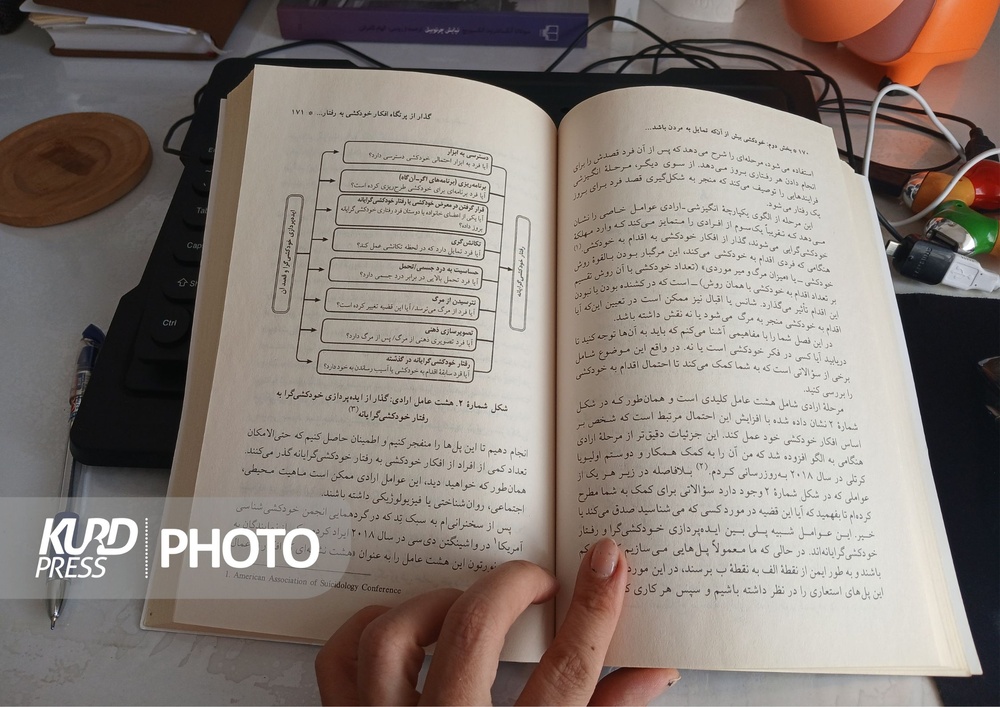 ۱۷۰ • بخش دوم. خودکشی بیش از آنکه تمایل به مردن باشد...
استفاده می‌شود، مرحله‌ای را شرح می‌دهد که پس از آن فرد قصدش را برای
انجام دادن هر رفتاری بروز می‌دهد. از سوی دیگر، مرحلهٔ انگیزشی
فرایندهایی را توصیف می‌کند که منجر به شکل‌گیری قصد فرد برای بروز
یک رفتار می‌شود.
این مرحله از الگوی یکپارچهٔ انگیزشی-ارادی عوامل خاصی را نشان
می‌دهد که تقریباً یک‌سوم از افرادی را متمایز می‌کند که وارد مهلکهٔ
خودکشی‌گرایی می‌شوند، گذار از افکار خودکشی به اقدام به خودکشی (۱)
هنگامی که فردی اقدام به خودکشی می‌کند، این مرگبار بودن بالقوهٔ روش
خودکشی - یا «میزان مرگ و میر موردی» (تعداد خودکشی با آن روش تقسیم
بر تعداد اقدام به خودکشی با همان روش) - است که در کشنده بودن یا نبودن
این اقدام تأثیر می‌گذارد. شانس یا اقبال نیز ممکن است در تعیین این‌که آیا
اقدام به خودکشی منجر به مرگ می‌شود یا نه نقش داشته باشد.
در این فصل شما را با مفاهیمی آشنا می‌کنم که باید به آن‌ها توجه کنید تا
دریابید آیا کسی در فکر خودکشی است یا نه. در واقع این موضوع شامل
برخی از سؤالاتی است که به شما کمک می‌کند تا احتمال اقدام به خودکشی
را بررسی کنید.
مرحلهٔ ارادی شامل هشت عامل کلیدی است و همان‌طور که در شکل
شمارهٔ ۲ نشان داده شده با افزایش این احتمال مرتبط است که شخص بر
اساس افکار خودکشی خود عمل کند. این جزئیات دقیق‌تر از مرحلهٔ ارادی
هنگامی به الگو افزوده شد که من آن را به کمک همکار و دوستم اولیویا
کرتلی در سال ۲۰۱۸ به‌روزرسانی کردم.(۲) بلافاصله در زیر هر یک از
عواملی که در شکل شمارهٔ ۲ وجود دارد سؤالاتی برای کمک به شما مطرح
کرده‌ام تا بفهمید که آیا این قضیه در مورد کسی که می‌شناسید صدق می‌کند یا
خیر. این عوامل شبیه پلی بین ایده‌پردازی خودکشی‌گرا و رفتار
خودکشی‌گرایانه‌اند. در حالی که ما معمولاً پل‌هایی می‌سازیم
باشند و به طور ایمن از نقطهٔ الف به نقطهٔ ب برسند، در این مورد
این پل‌های استعاری را در نظر داشته باشیم و سپس هر کاری
گذار از پرتگاه افکار خودکشی به رفتار... • ۱۷۱
ایده‌پردازی خودکشی‌گرا و قصد آن
دسترسی به ابزار
آیا فرد به ابزار احتمالی خودکشی دسترسی دارد؟
برنامه‌ریزی (برنامه‌های اگر-آن‌گاه)
آیا فرد برنامه‌ای برای خودکشی طرح‌ریزی کرده است؟
قرار گرفتن در معرض خودکشی یا رفتار خودکشی‌گرایانه
آیا یکی از اعضای خانواده یا دوستان فرد رفتاری خودکشی‌گرایانه
بروز داده؟
تکانش‌گری
آیا فرد تمایل دارد که در لحظه تکانشی عمل کند؟
حساسیت به درد جسمی/تحمل
آیا فرد تحمل بالایی در برابر درد جسمی دارد؟
نترسیدن از مرگ
آیا فرد از مرگ می‌ترسد/ آیا این قضیه تغییر کرده است؟
تصویرسازی ذهنی
آیا فرد تصویری ذهنی از مرگ/ پس از مرگ دارد؟
رفتار خودکشی‌گرایانه در گذشته
آیا فرد سابقهٔ اقدام به خودکشی یا آسیب رساندن به خود دارد؟
رفتار خودکشی‌گرایانه
شکل شمارهٔ ۲. هشت عامل ارادی: گذار از ایده‌پردازی خودکشی‌گرا به
رفتار خودکشی‌گرایانه(۳)
انجام دهیم تا این پل‌ها را منفجر کنیم و اطمینان حاصل کنیم که حتی‌الامکان
تعداد کمی از افراد از افکار خودکشی به رفتار خودکشی‌گرایانه گذر می‌کنند.
همان‌طور که خواهید دید، این عوامل ارادی ممکن است ماهیت محیطی،
اجتماعی، روان‌شناختی یا فیزیولوژیکی داشته باشند.
پس از سخنرانی‌ام به سبک تِد که در گردهمایی انجمن خودکشی‌شناسی
آمریکا۱ در واشینگتن دی‌سی در سال ۲۰۱۸ ایراد کردم
این هشت عامل را به عنوان «هشت
1. American Association of Suicidology Conference
Tab
Cap
Sh
Ctrl
KURD
PRESS
PHOTO